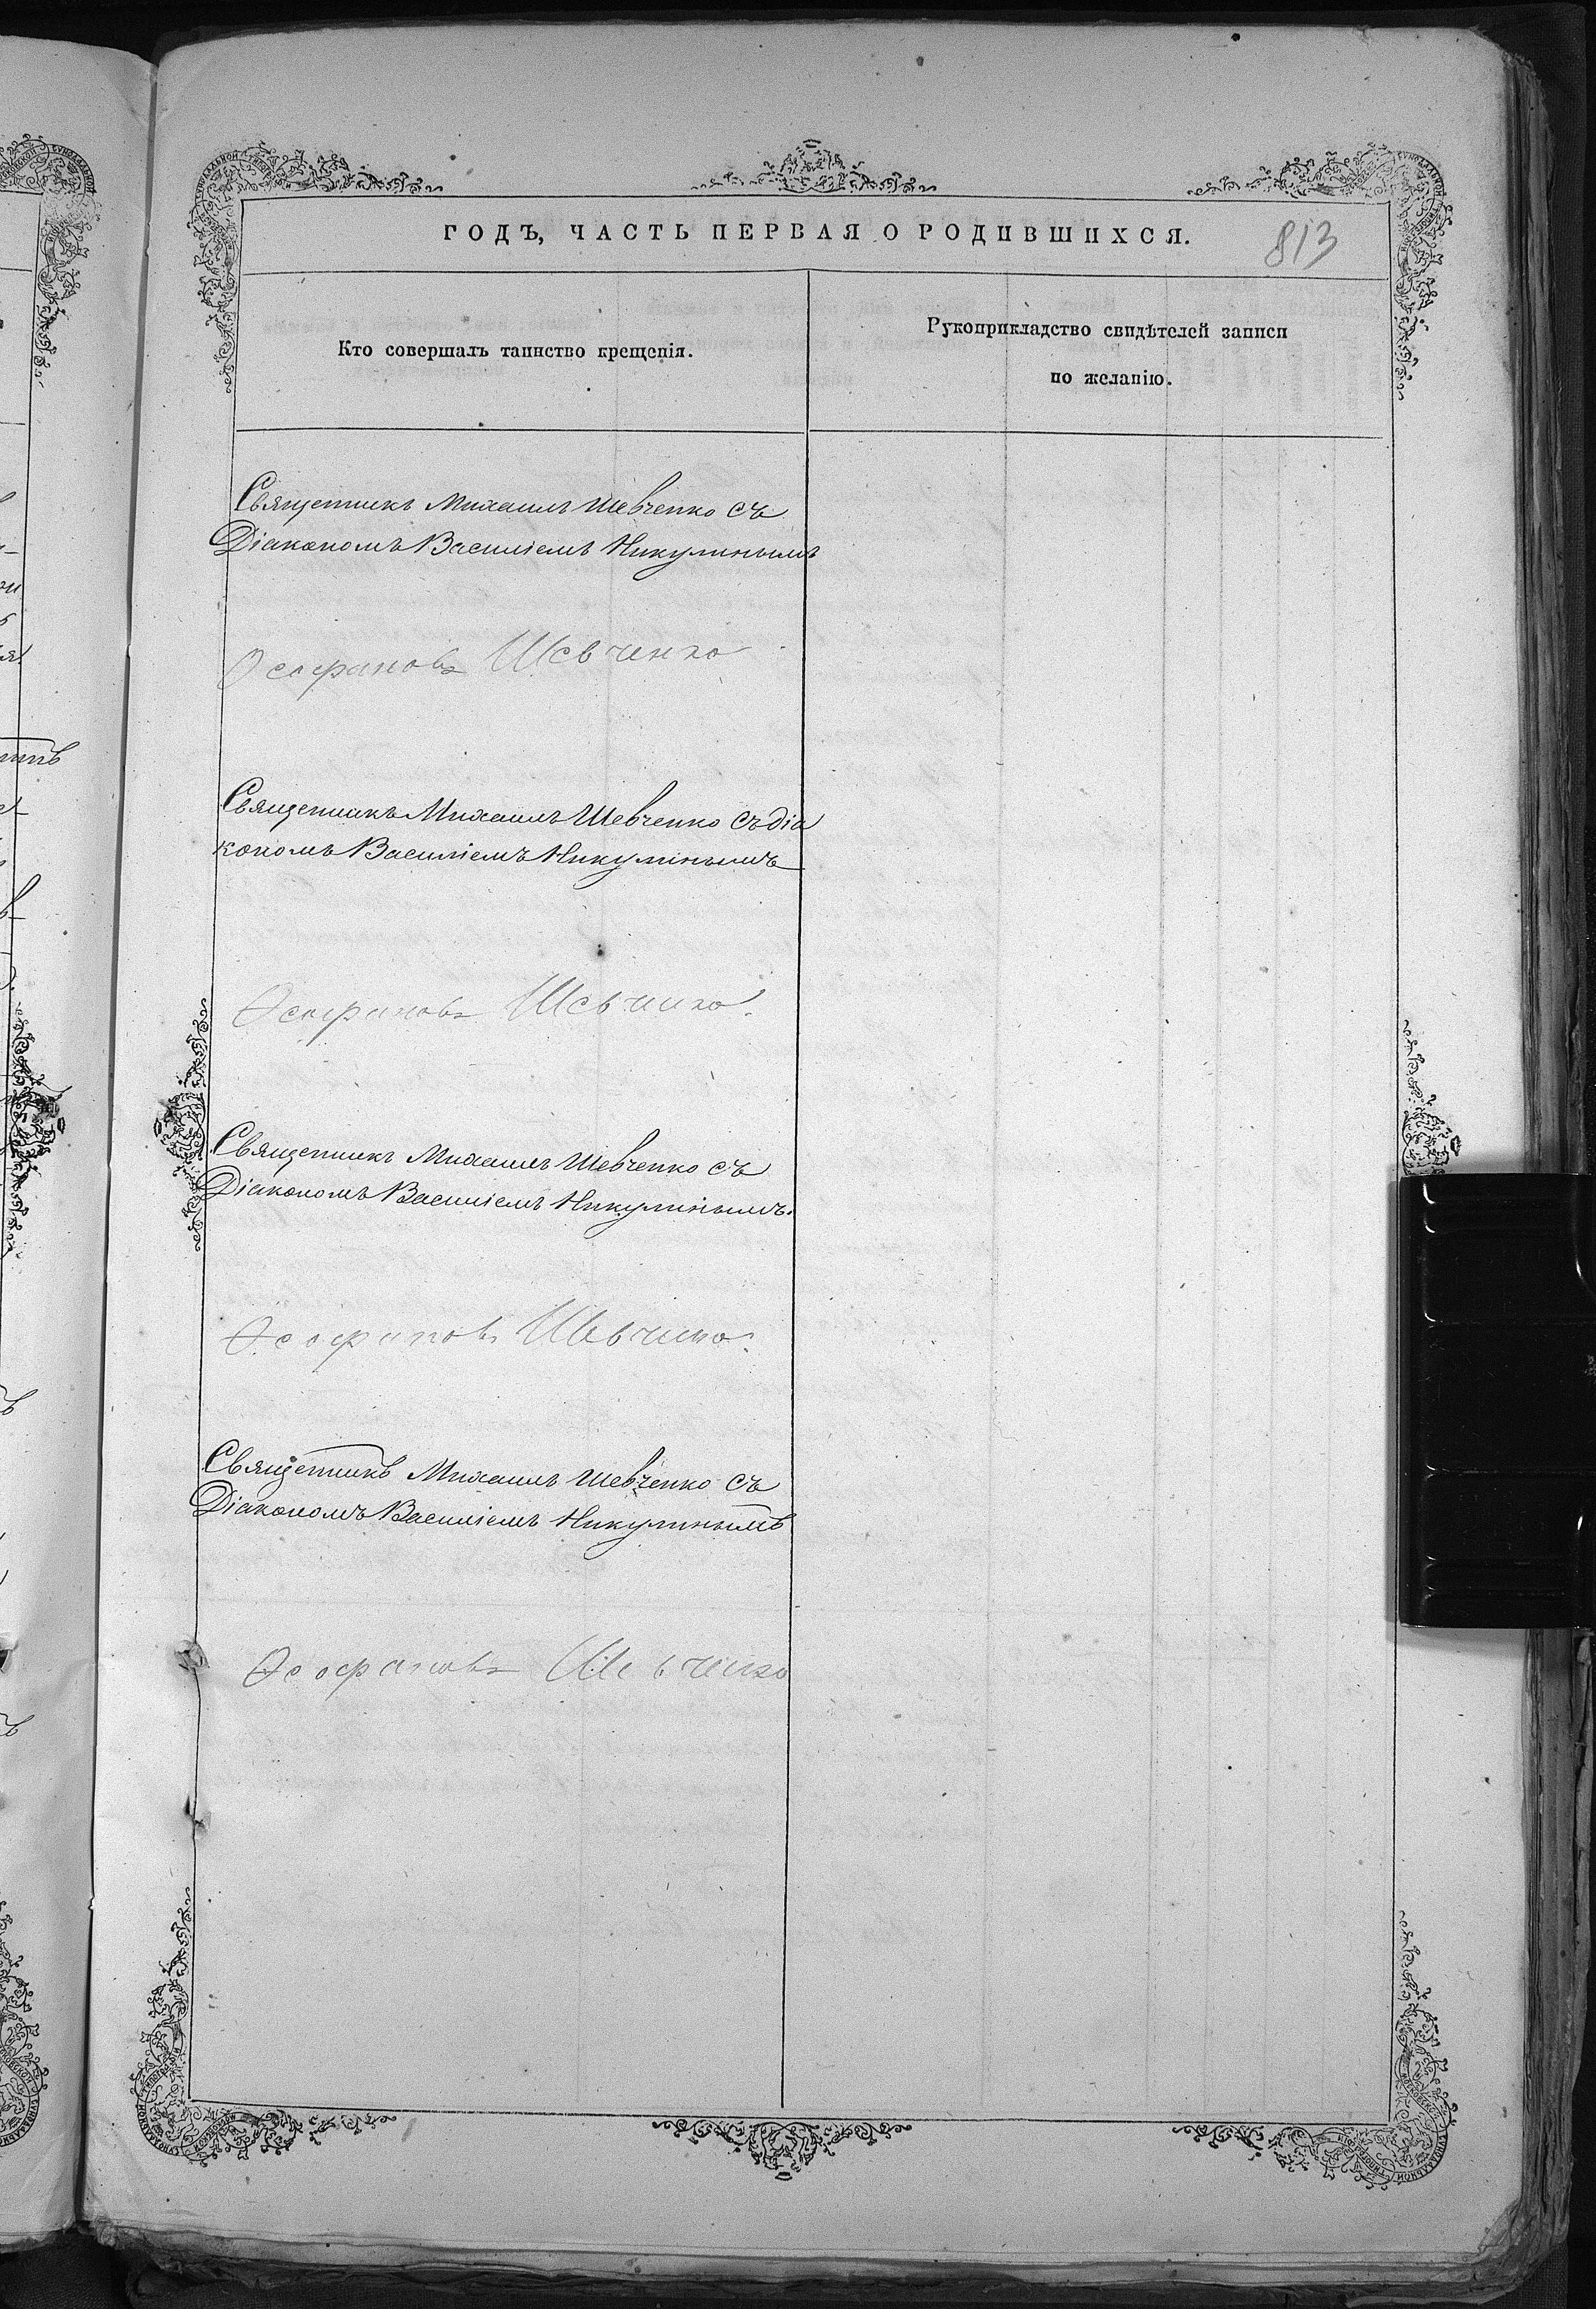 ГОДЪ, ЧАСТЬ ПЕРВАЯ О РОДИВШИХСЯ.
813
Кто совершалъ таинство крещенія.
Рукоприкладство свидѣтелей записи
по желанію.
Священникъ Михаилъ Шевченко съ
Діакономъ Василіемъ Никулинымъ
Ѳеофановъ Шевченко
Священникъ Михаилъ Шевченко съ діа
кономъ Василіемъ Никулинымъ
Ѳеофановъ Шевченко.
Священникъ Михаилъ Шевченко съ
Діакономъ Василіемъ Никулинымъ.
Ѳеофановъ Шевченко.
Священникъ Михаилъ Шевченко съ
Діакономъ Василіемъ Никулинымъ
Ѳеофановъ Шевченко